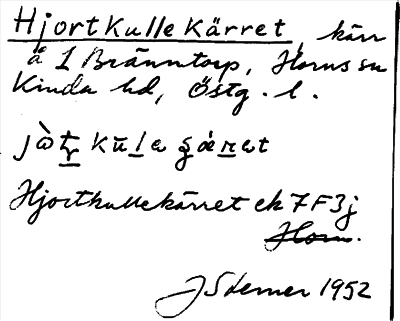 Hjortkullekärret, kärr
å 1 Bränntorp, Horns sn
Kinda hd, Östg. l.
Hjortkullekärret ek 7F3j
Horn.
J Sterner 1952